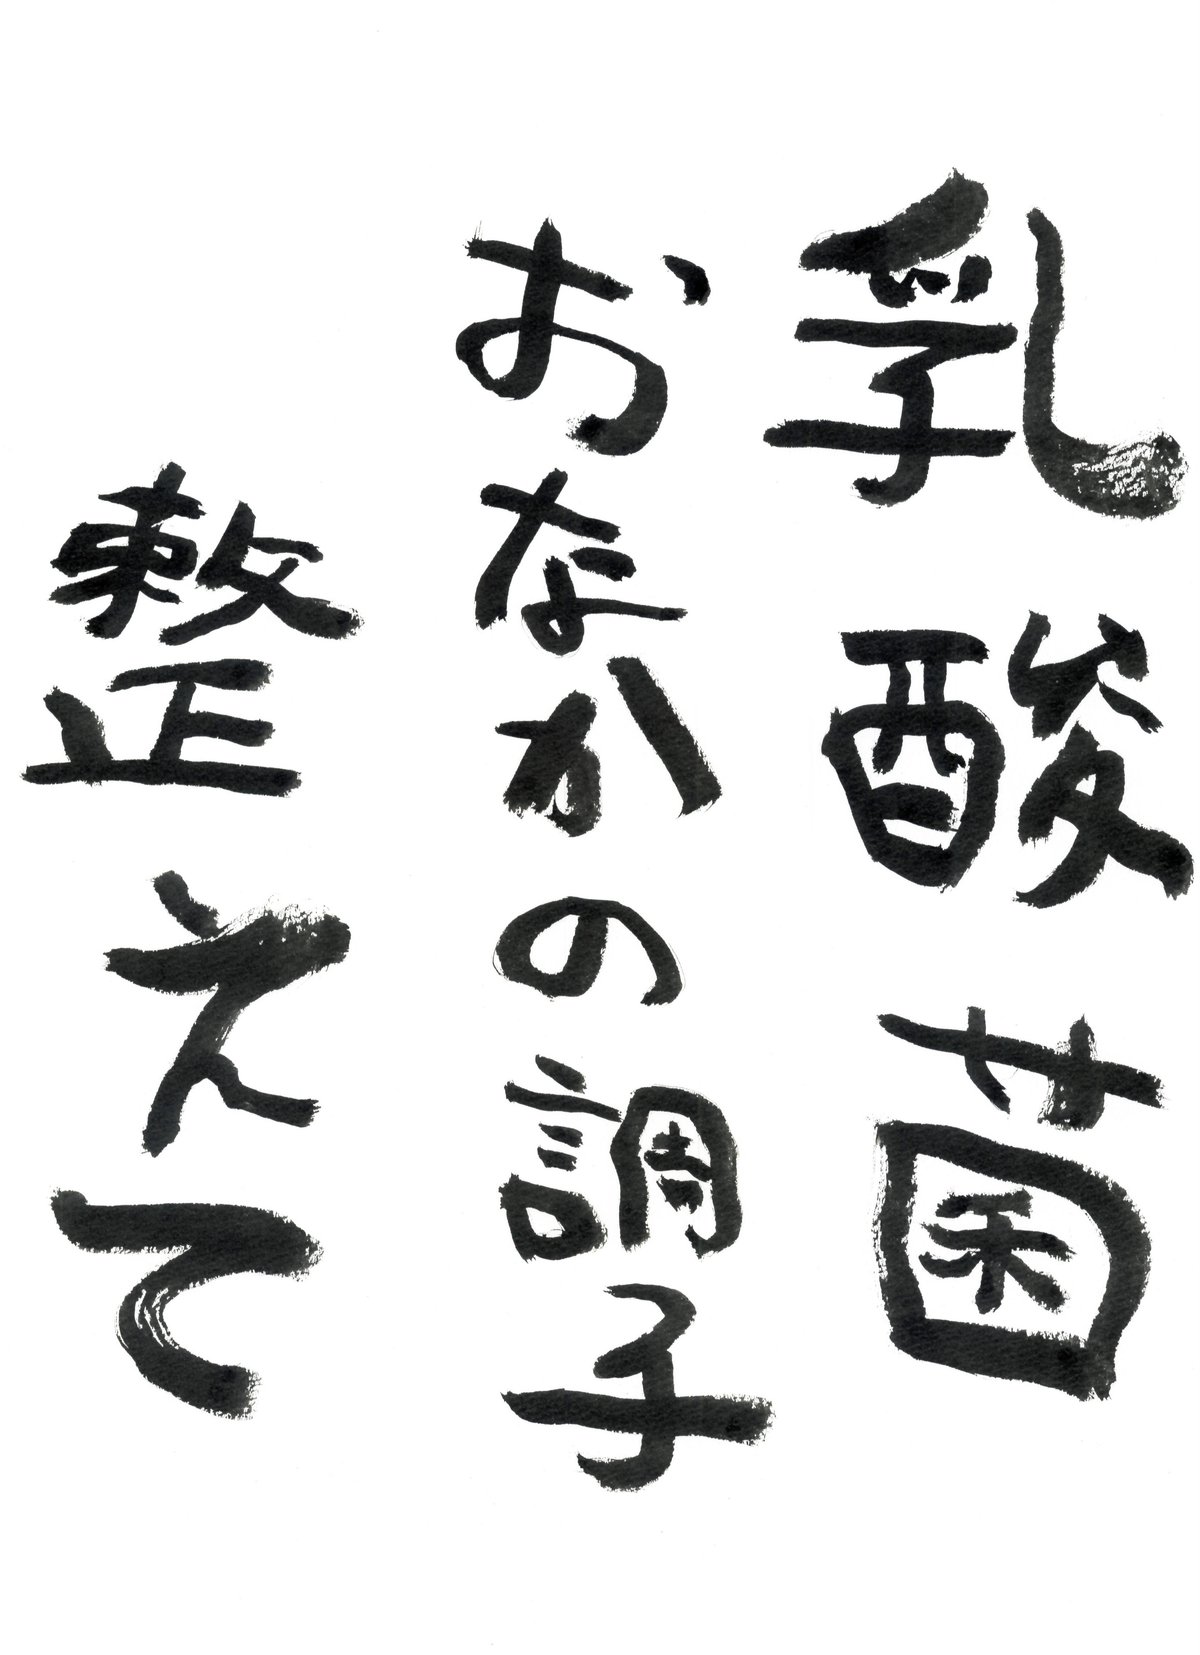 乳酸菌
おなかの調子
整えて